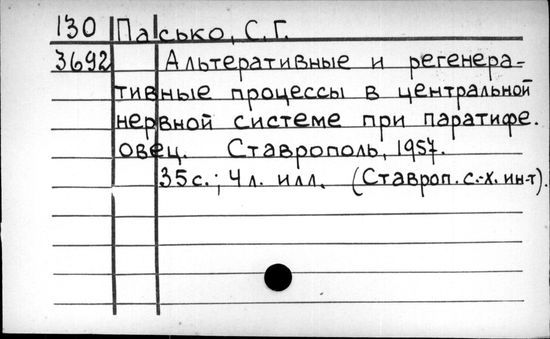 130 Пасько, С.Г.
3692 Альтеративные и регенера-
тивные процессы в центральной
нервной системе при паратифе.
овец. Ставрополь, 1957.
35с.; 4л. илл. (Ставроп. с.-х. ин-т).